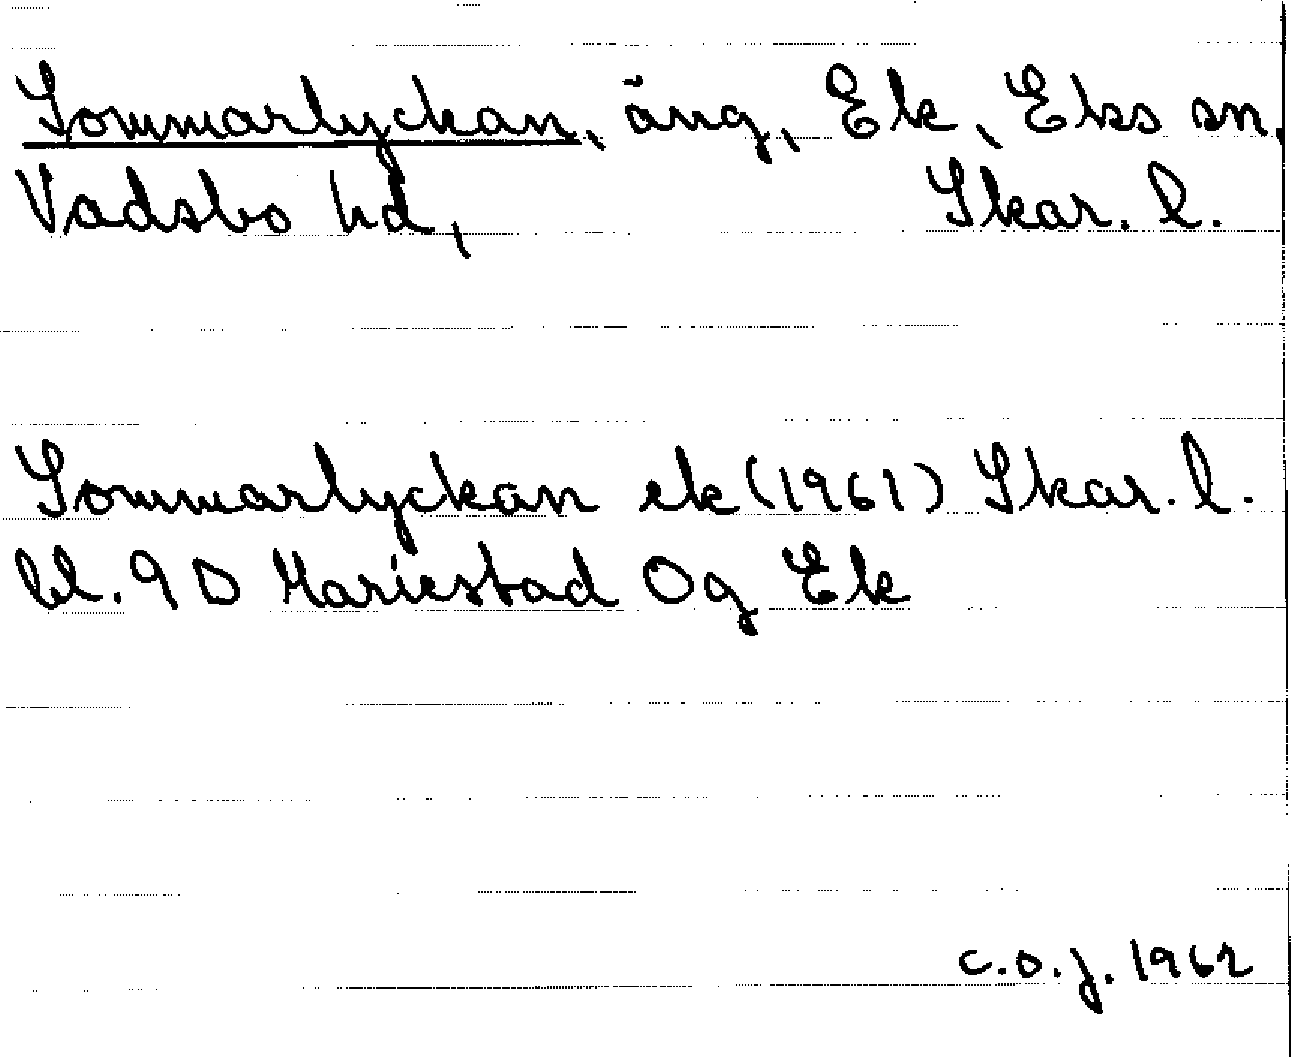 Sommarlyckan, äng, Ek, Eks sn,
Vadsbo hd, Skar. l.
Sommarlyckan ek (1961) Skar. l.
bl. 9 D Mariestad Og Ek
C.O.J. 1962